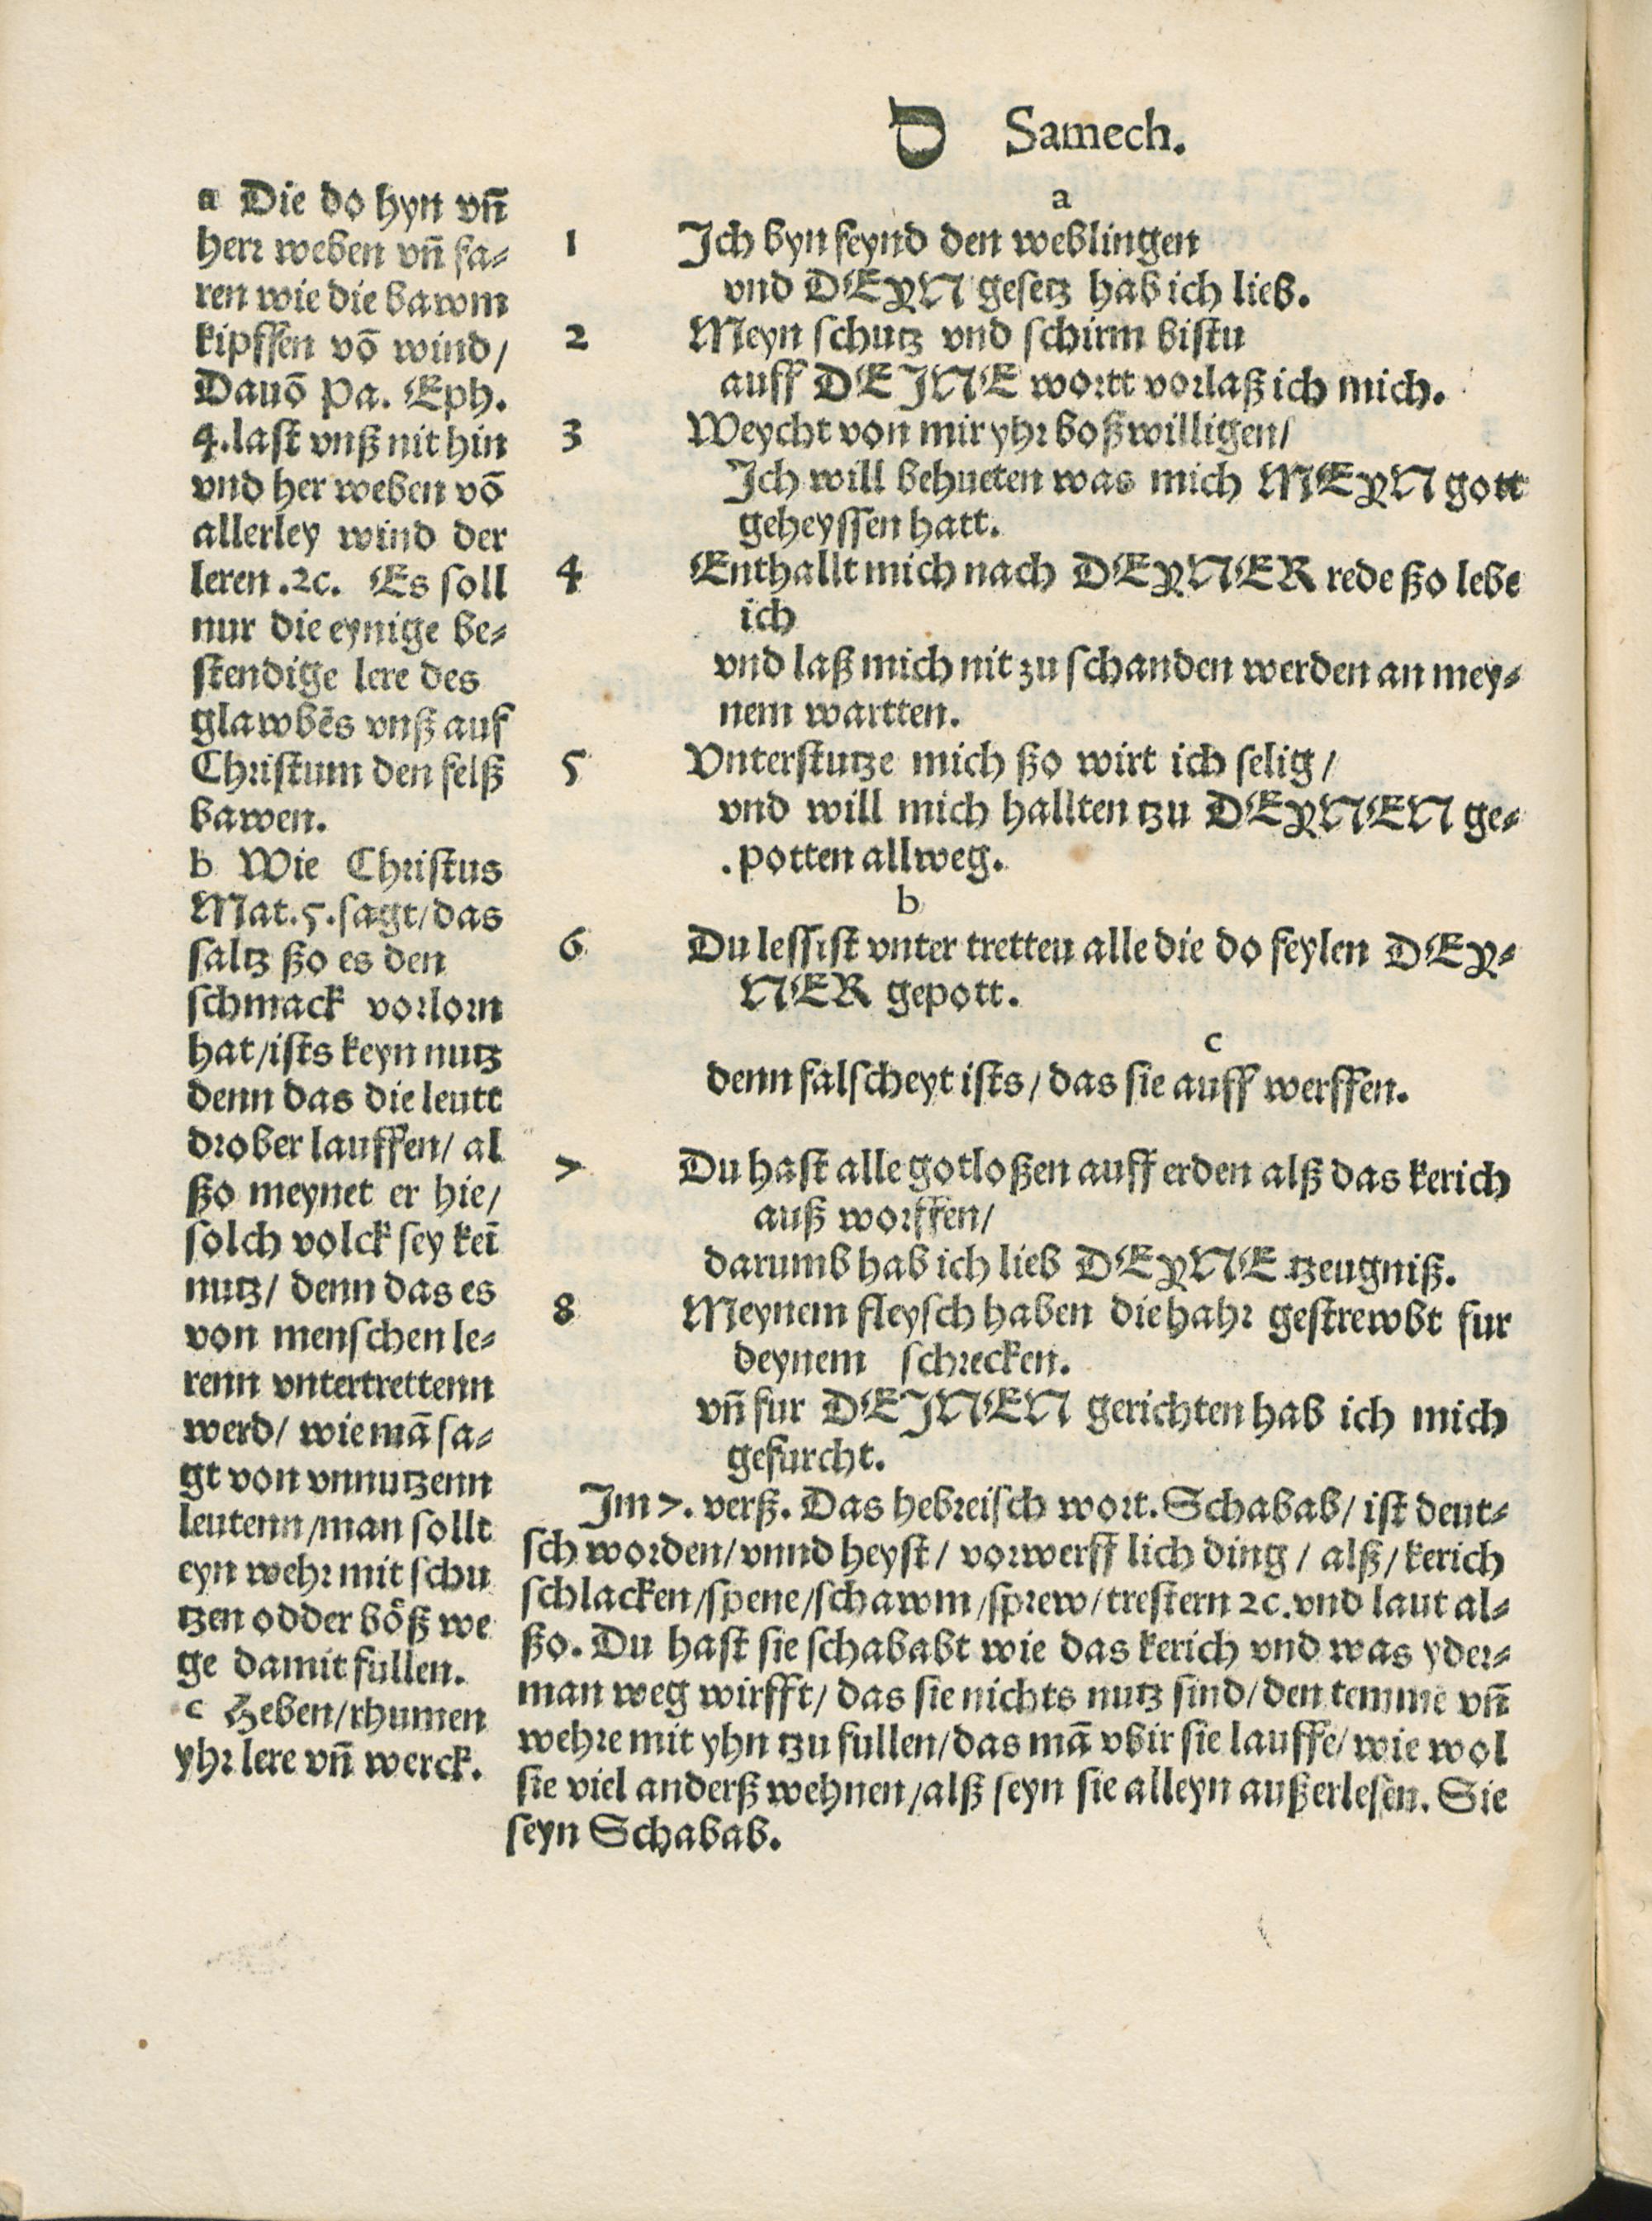 ס Samech.
a Die do hyn vñ
herꝛ weben vñ fa⸗
ren wie die bawm
kipffen võ wind/
Dauõ Pa. Eph.
4.last vnß nit hin
vnd her weben võ
allerley wind der
leren .ꝛc. Es soll
nur die eynige be⸗
stendige lere des
glawbēs vnß auf
Christum den felß
bawen.
b Wie Christus
Mat.5.sagt/das
saltz ßo es den
schmack vorlorn
hat/ists keyn nutz
denn das die leutt
drober lauffen/ al
ßo meynet er hie/
solch volck sey kei̅
nutz/ denn das es
von menschen le⸗
renn vntertrettenn
werd/ wie mā sa⸗
gt von vnnutzenn
leutenn/man sollt
eyn wehr mit schu
tzen odder böß we
ge damit fullen.
c Heben/rhumen
yhr lere vñ werck.
a
1 Ich byn feynd den weblingen
vnd DEYN gesetz hab ich lieb.
2 Meyn schutz vnd schirm bistu
auff DEINE wortt vorlaß ich mich.
3 Weycht von mir yhr boßwilligen/
Ich will behueten was mich MEYN gott
geheyssen hatt.
4 Enthallt mich nach DEYNER rede ßo lebe
ich
vnd laß mich nit zu schanden werden an mey⸗
nem wartten.
5 Vnterstutze mich ßo wirt ich selig/
vnd will mich hallten tzu DEYNEN ge⸗
.potten allweg.
b
6 Du lessist vnter tretten alle die do feylen DEY⸗
NER gepott.
c
denn falscheyt ists/ das sie auff werffen.
7 Du hast alle gotloßen auff erden alß das kerich
auß worffen/
darumb hab ich lieb DEYNE tzeugniß.
8 Meynem fleysch haben die hahr gestrewbt fur
deynem schrecken.
vñ fur DEINEN gerichten hab ich mich
gefurcht.
Im 7. verß. Das hebreisch wort. Schabab/ ist deut⸗
sch worden/ vnnd heyst/ vorwerff lich ding/ alß/ kerich
schlacken/spene/schawm/sprew/trestern ꝛc.vnd laut al⸗
ßo. Du hast sie schababt wie das kerich vnd was yder⸗
man weg wirfft/ das sie nichts nutz sind/ den temme vñ
wehre mit yhn tzu fullen/das mā vbir sie lauffe/ wie wol
sie viel anderß wehnen/alß seyn sie alleyn außerlesen. Sie
seyn Schabab.